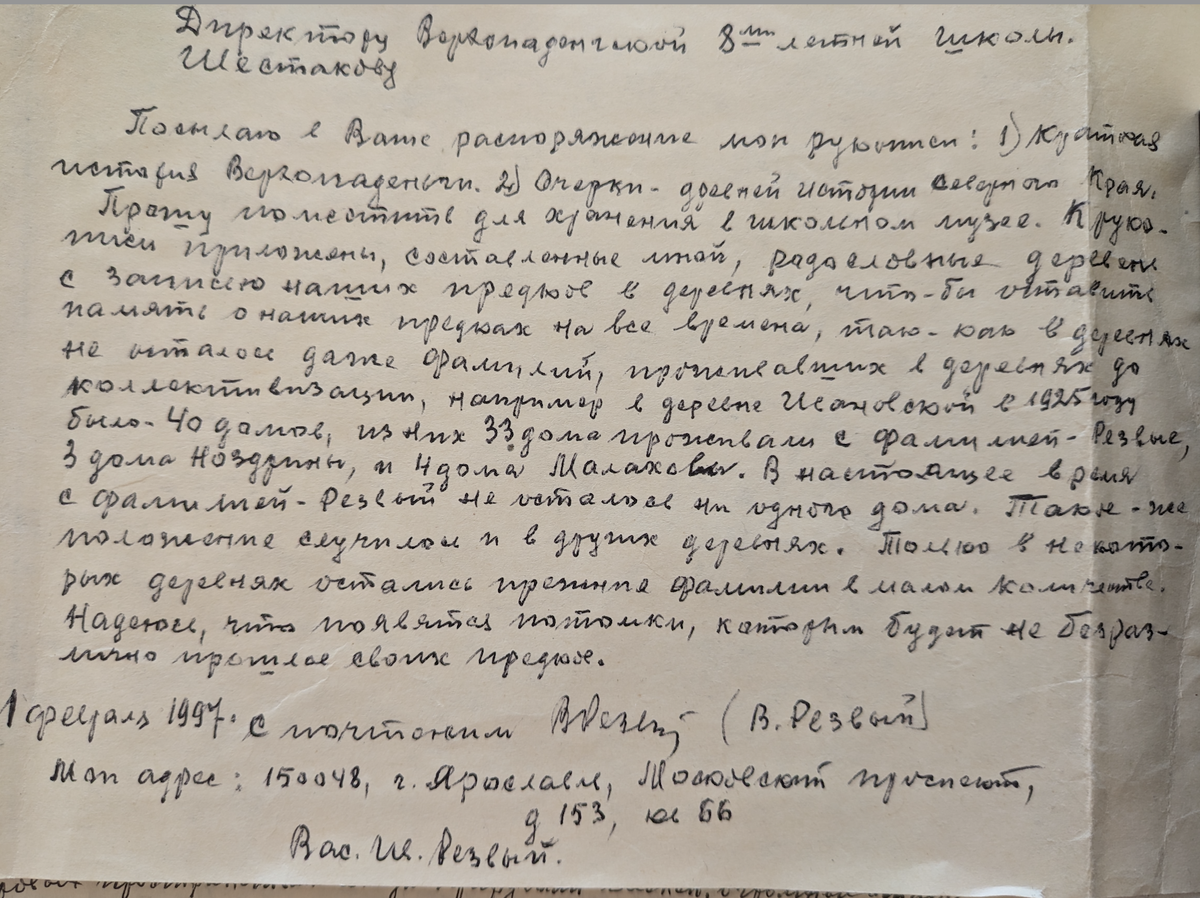 Директору Верхопаденгской 8ми летней школы.
Шестакову
Посылаю в Ваше распоряжение мои рукописи: 1) Краткая
история Верхопаденьги. 2) Очерки - древней истории Северного Края.
Прошу поместить для хранения в школьном музее. К руко-
писи приложены, составленные мной, родословные деревьев
с записею наших предков в деревнях, что-бы оставить
память о наших предках на все времена, так-как в деревнях
не осталось даже фамилий, проживавших в деревнях до
коллективизации, например в деревне Ивановской в 1925 году
было - 40 домов, из них 33 дома проживали с фамилией - Резвые,
3 дома Ноздрины, и 4 дома Малаховы. В настоящее время
с фамилией - Резвый не осталось ни одного дома. Такое - же
положение случилось и в других деревнях. Только в некото-
рых деревнях остались прежние фамилии в малом количестве.
Надеюсь, что появятся потомки, которым будет не безраз-
лично прошлое своих предков.
1 февраля 1997. С почтением ВРезвый (В. Резвый)
Мой адрес: 150048, г. Ярославль, Московский проспект,
д 153, кв 66
Вас. Ив. Резвый.